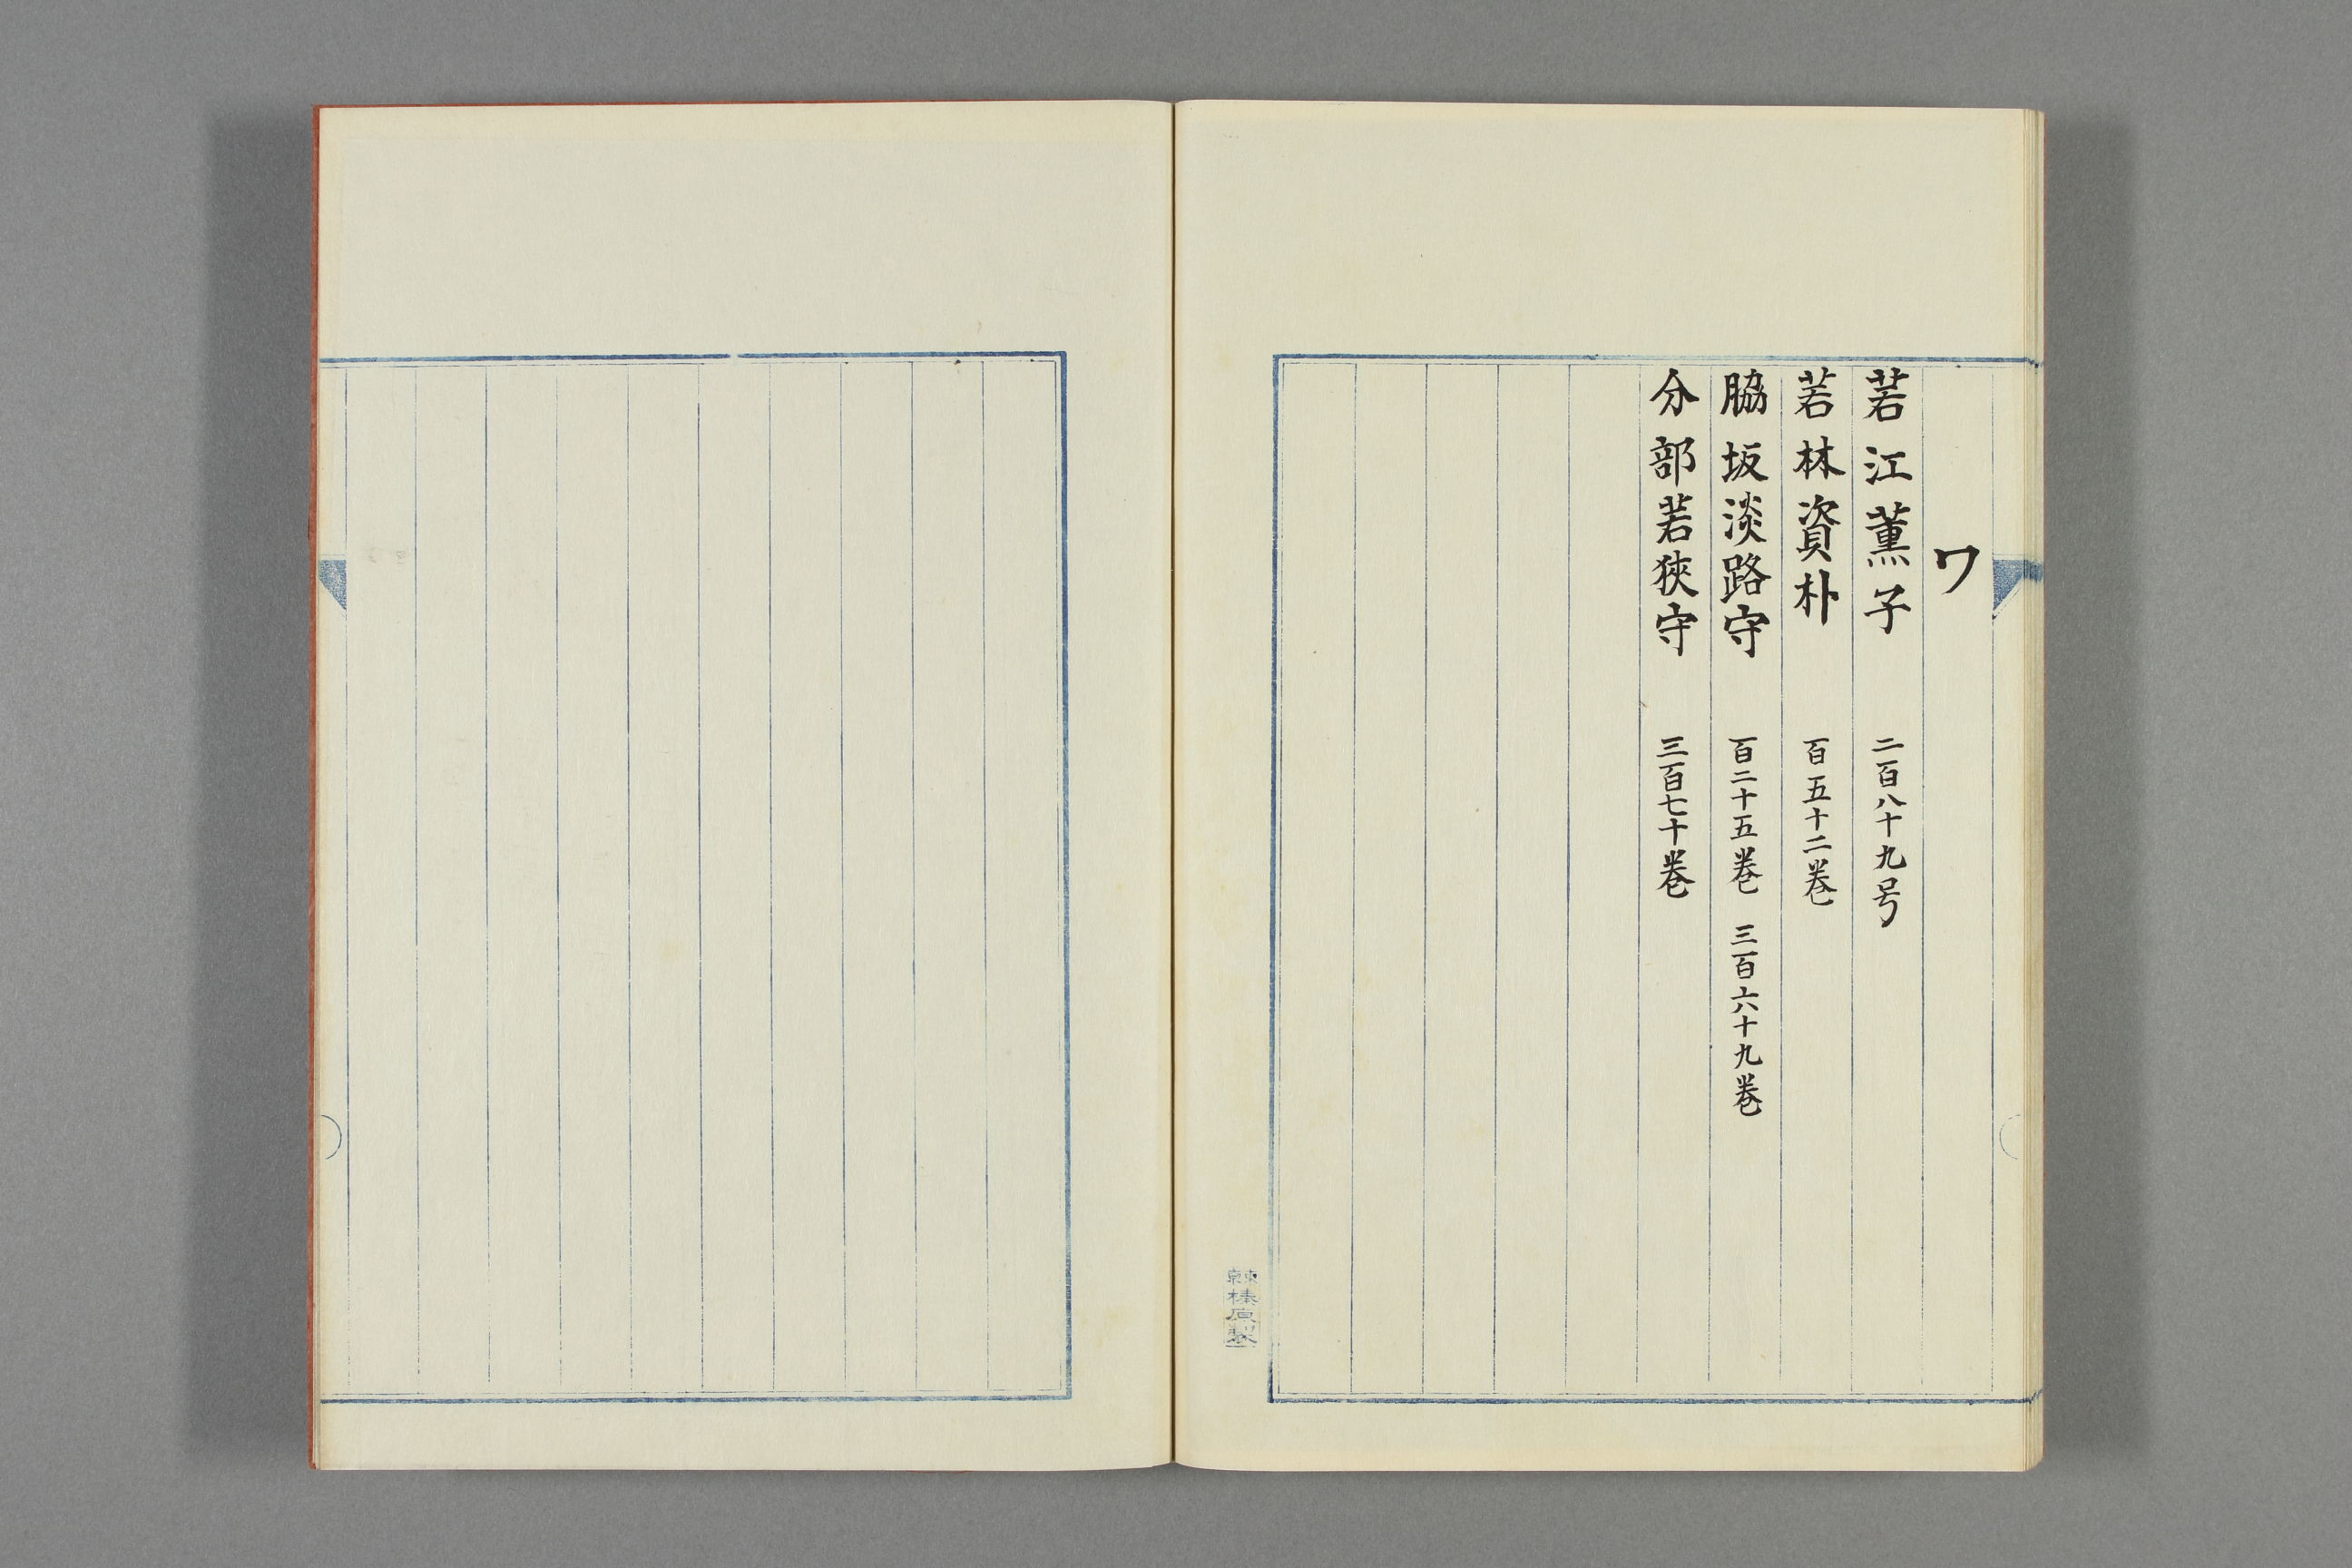 ワ
若江薫子 二百八十九号
若林資朴 百五十二巻
脇坂淡路守 百二十五巻 三百六十九巻
分部若狹守 三百七十巻
榛原製